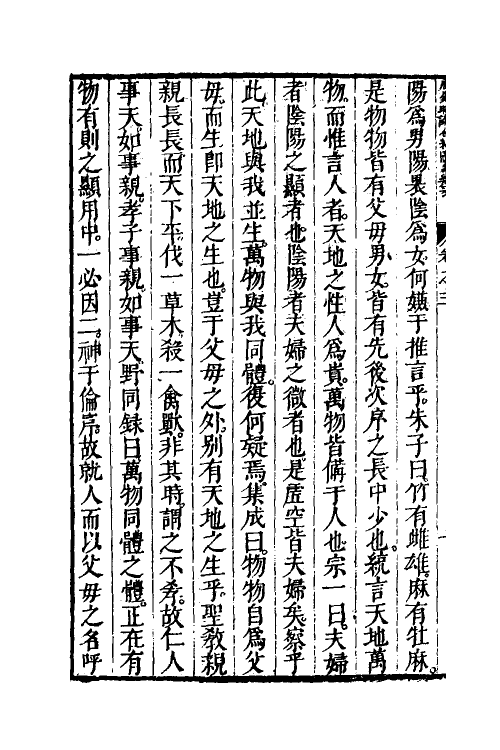 陽爲男陽裏陰爲女何嫌于推言乎朱子曰竹有雌雄麻有牡麻
是物物皆有父母男女皆有先後次序之長中少也統言天地萬
物而惟言人者天地之性人爲貴萬物皆備于人也宗一曰夫婦
者陰陽之顯者也陰陽者夫婦之微者也是虛空皆夫婦矣察乎
此天地與我並生萬物與我同體復何疑焉集成曰物物自爲父
母而生即天地之生也豈于父母之外別有天地之生乎聖敎親
親長長而天下平伐一草木殺一禽獸非其時謂之不孝故仁人
事天如事親孝子事親如事天野同録曰萬物同體之體正在有
物有則之顯用中一必因二神于倫序故就人而以父母之名呼